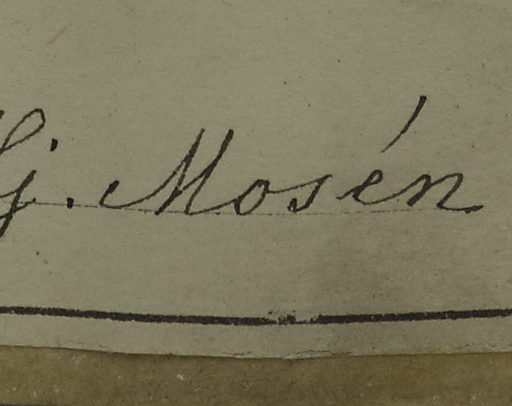 Hj. Mosén